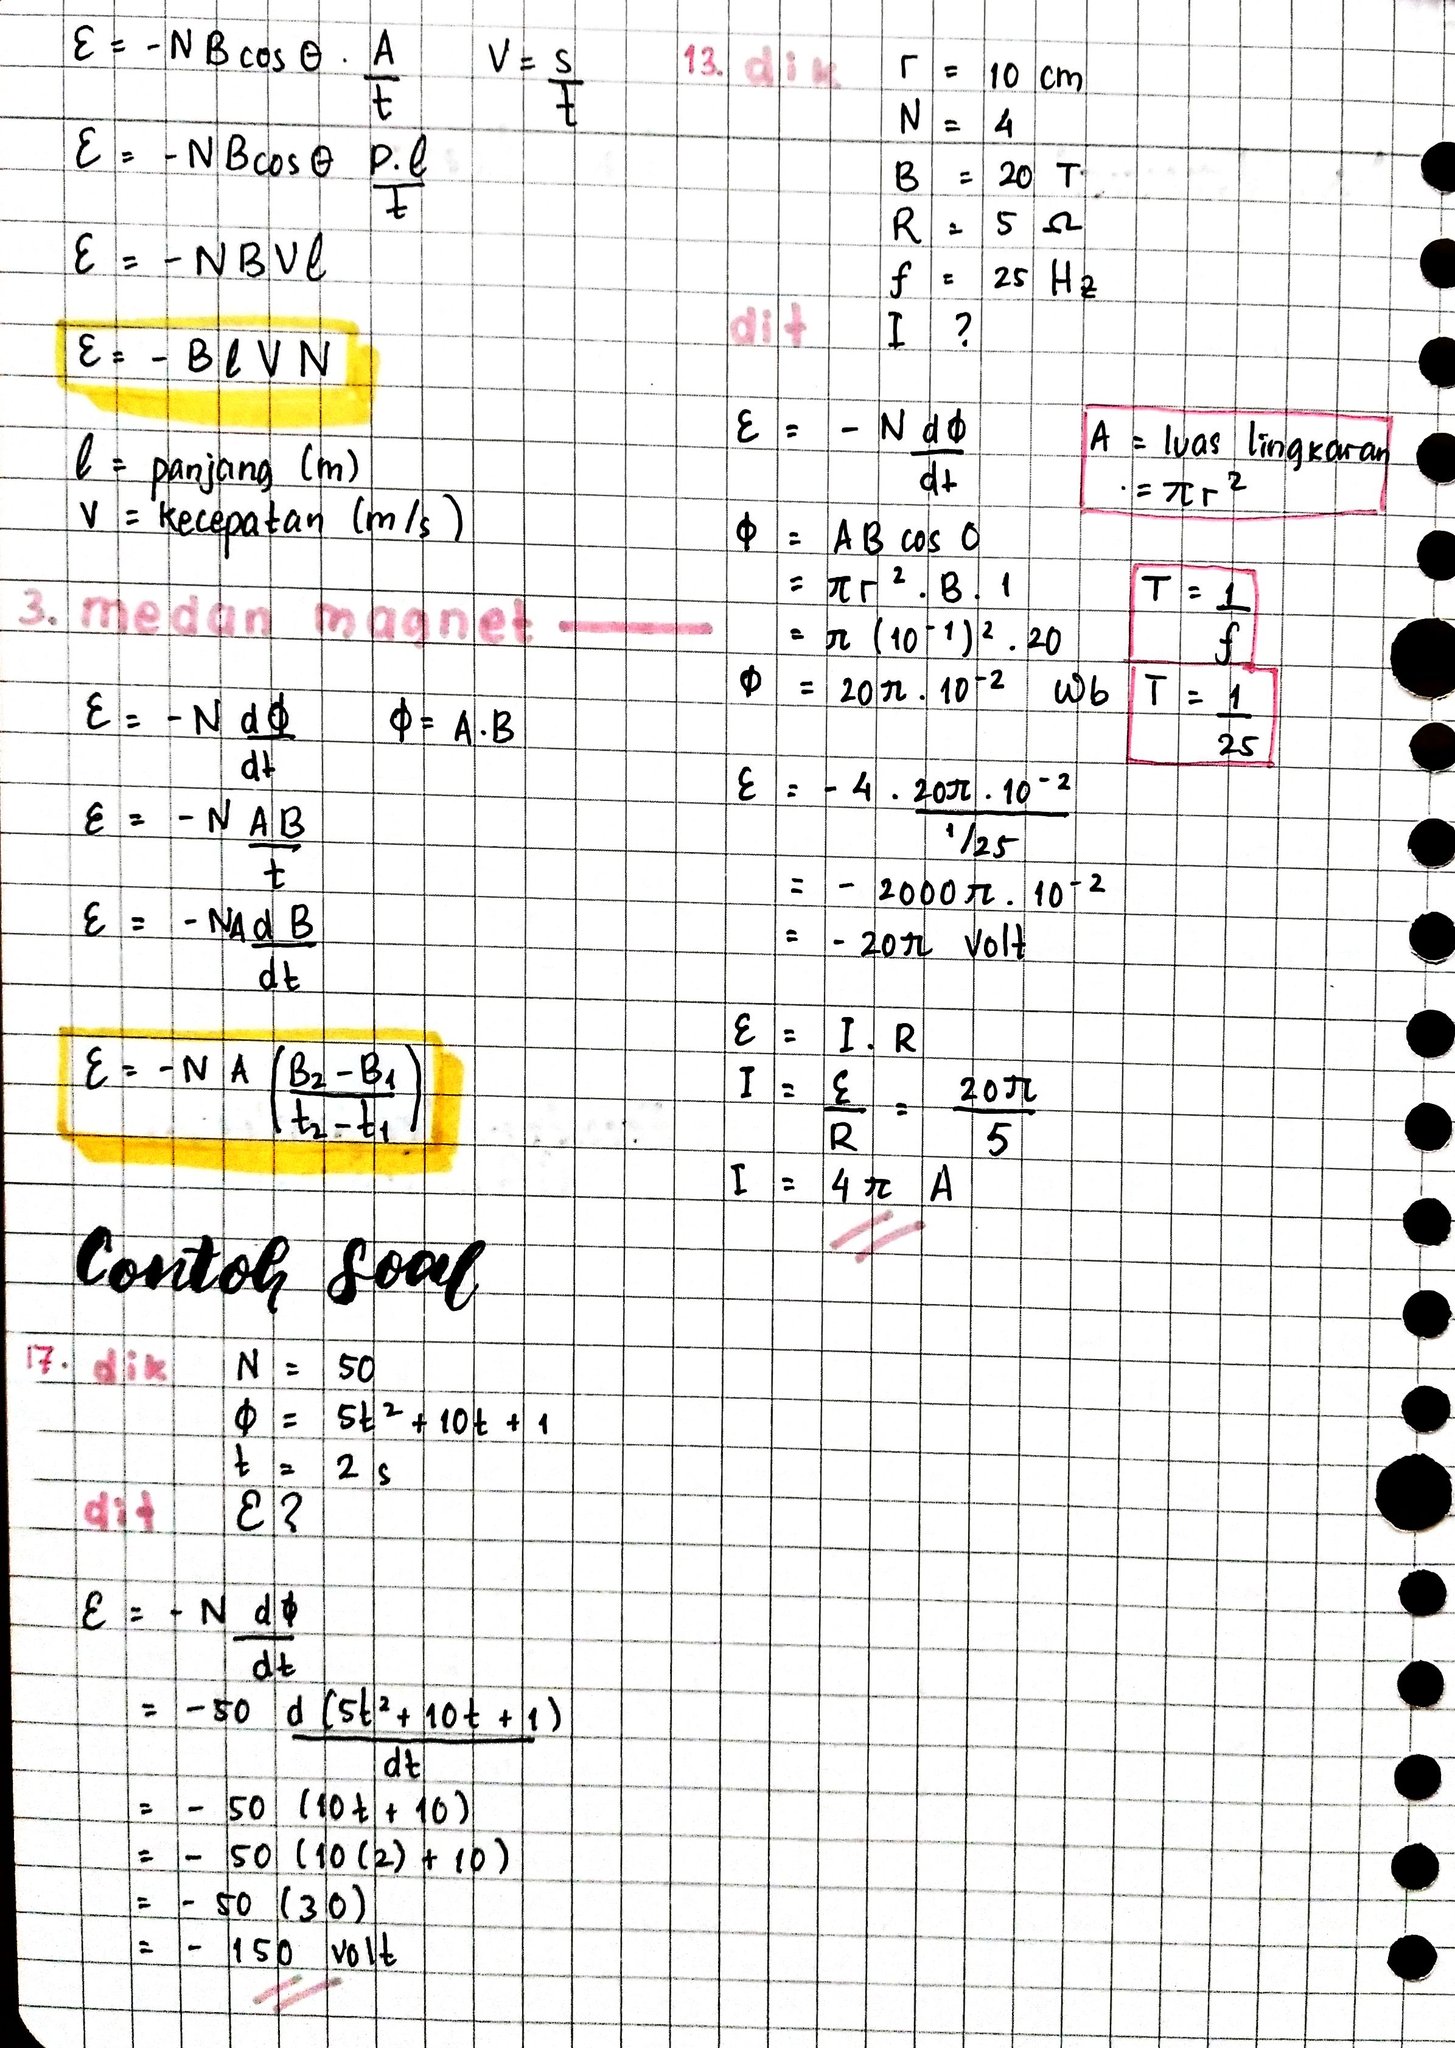 ε = -N B cos θ . A/t    V = s/t
ε = -N B cos θ p.l/t
ε = -N B V l
ε = - B l V N
l = panjang (m)
v = kecepatan (m/s)
3. medan magnet
ε = -N dΦ/dt    Φ = A.B
ε = -N AB/t
ε = -NA dB/dt
ε = -N A (B₂ - B₁/t₂ - t₁)
Contoh Soal
17. dik N = 50
Φ = 5t² + 10t + 1
t = 2 s
dit ε?
ε = -N dΦ/dt
= -50 d(5t² + 10t + 1)/dt
= - 50 (10t + 10)
= - 50 (10(2) + 10)
= - 50 (30)
= - 150 volt
13. dik r = 10 cm
N = 4
B = 20 T
R = 5 Ω
f = 25 Hz
dit I ?
ε = - N dΦ/dt
A = luas lingkaran
= πr²
Φ = AB cos 0
= πr² . B . 1
= π (10⁻¹)² . 20
Φ = 20π . 10⁻² Wb
T = 1/f
T = 1/25
ε = - 4 . 20π . 10⁻²/1/25
= - 2000π . 10⁻²
= - 20π Volt
ε = I . R
I = ε/R = 20π/5
I = 4π A